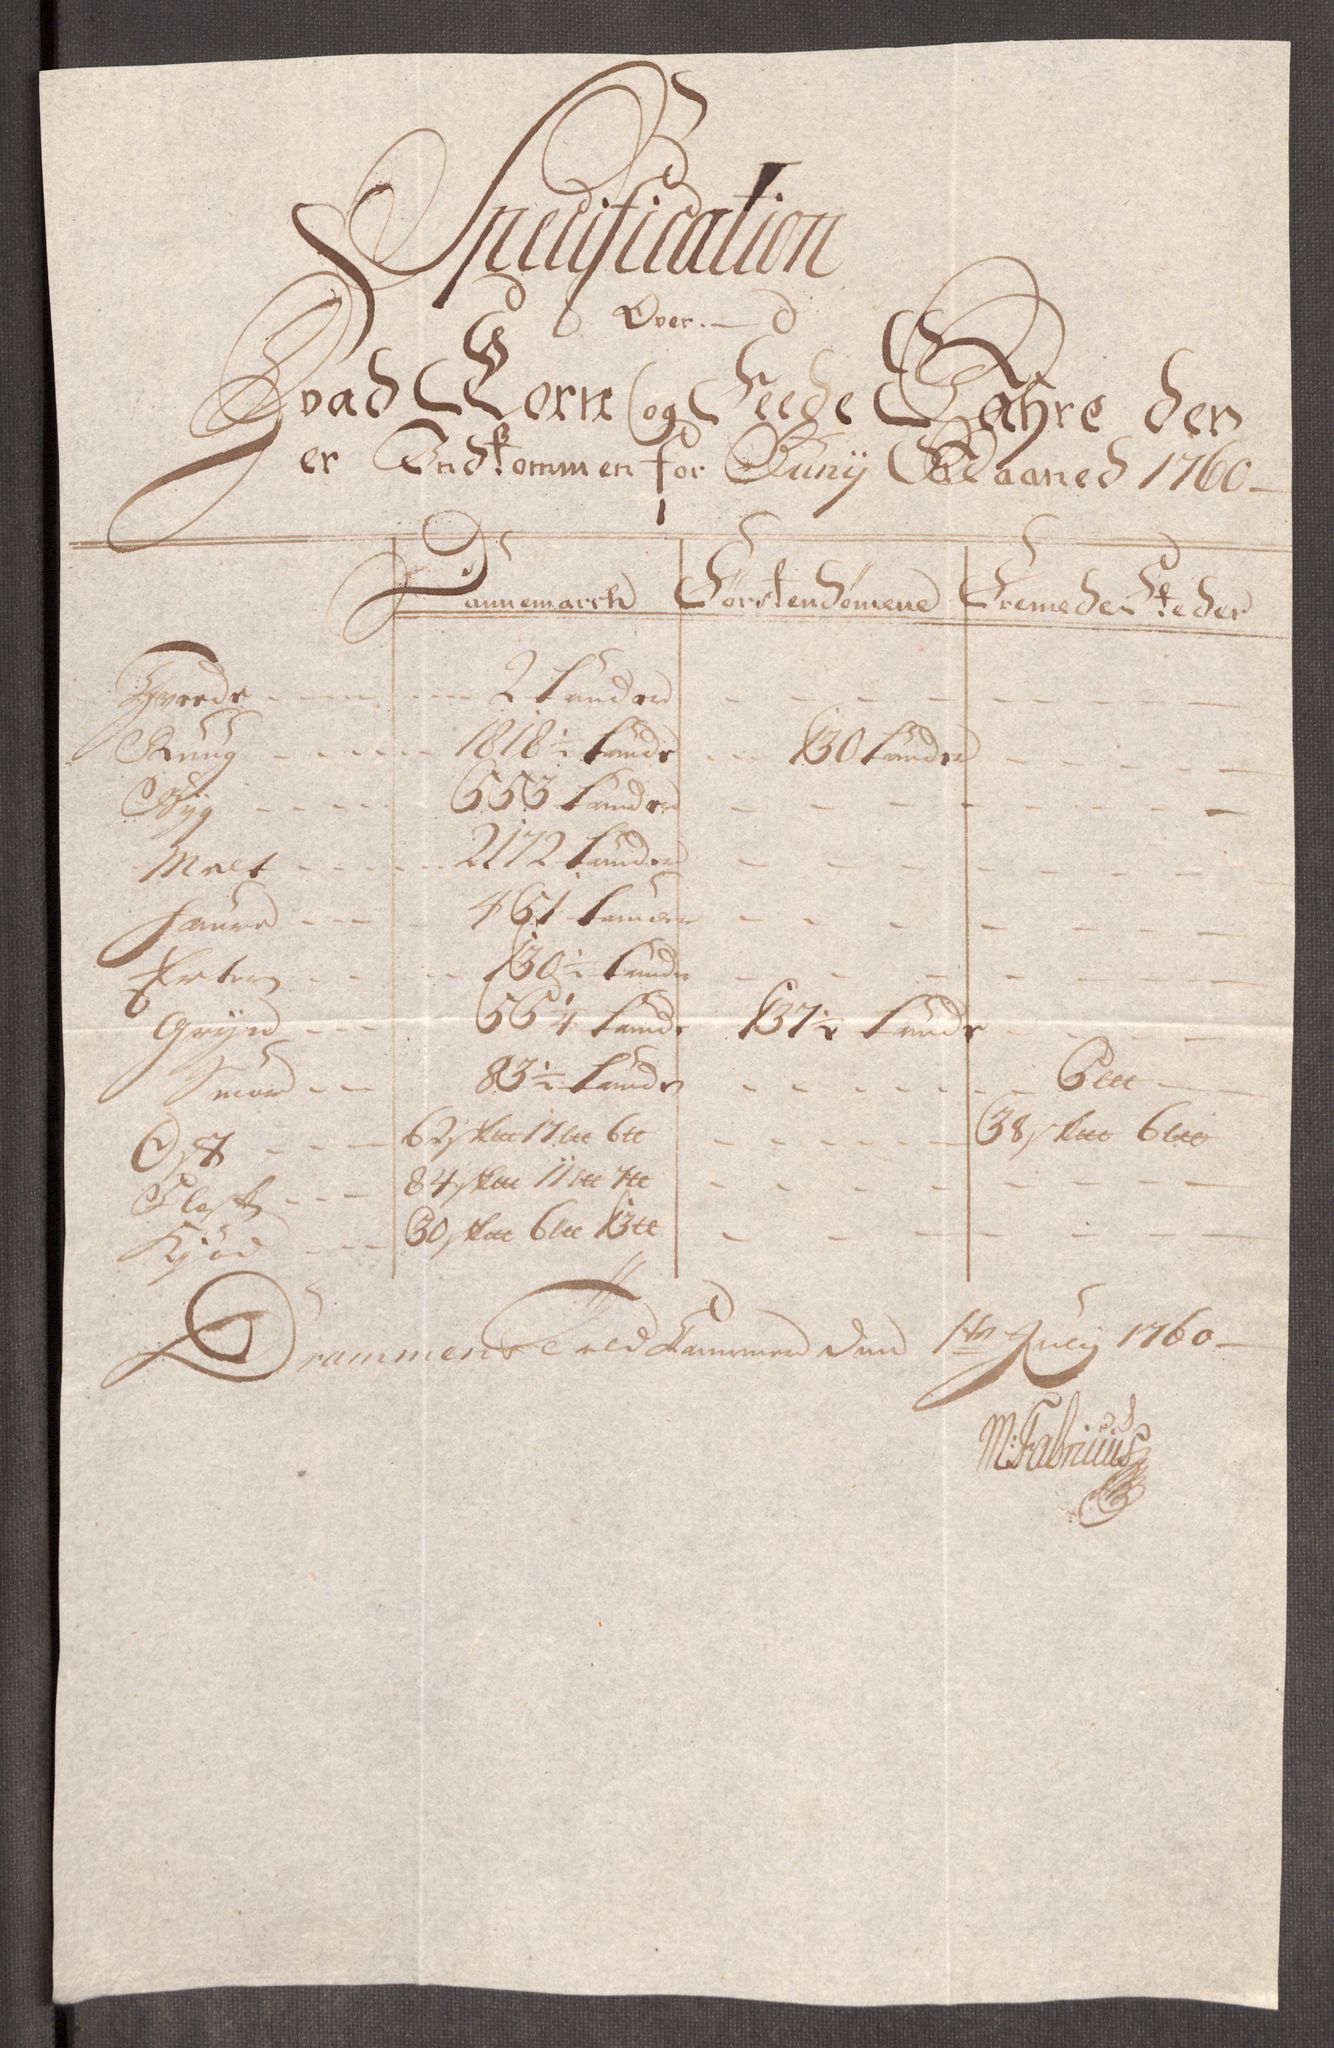 Specification
Over
Hvad Korn og Feede Wahre der
er Indkommen for Junij Maaned 1760
Dannemarch Førstendømene Fremede Steder
Hvede 2 Tønder
Ruug 1818½ Tønde 130 Tønder
Byg 553 Tønder
Malt 2172 Tønder
Havre 461 Tønder
Erter 130½ Tønde
Gryn 55¼ Tønde 137½ Tønde
Smør 83½ Tønde
Ost 62 17 6 38 6
Flesk 84 11 7
Kiød 30 6 13
Drammens Told Kammer den 1te July 1760
M: Fabritius